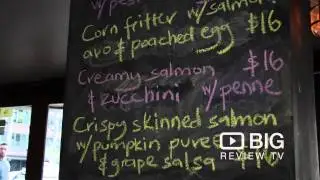 w/pesto
Corn fritter w/salmon
avo & poached egg $16
Creamy salmon $16
& zucchini w/penne
Crispy skinned salmon
w/pumpkin puree
& grape salsa
BIG
REVIEW TV